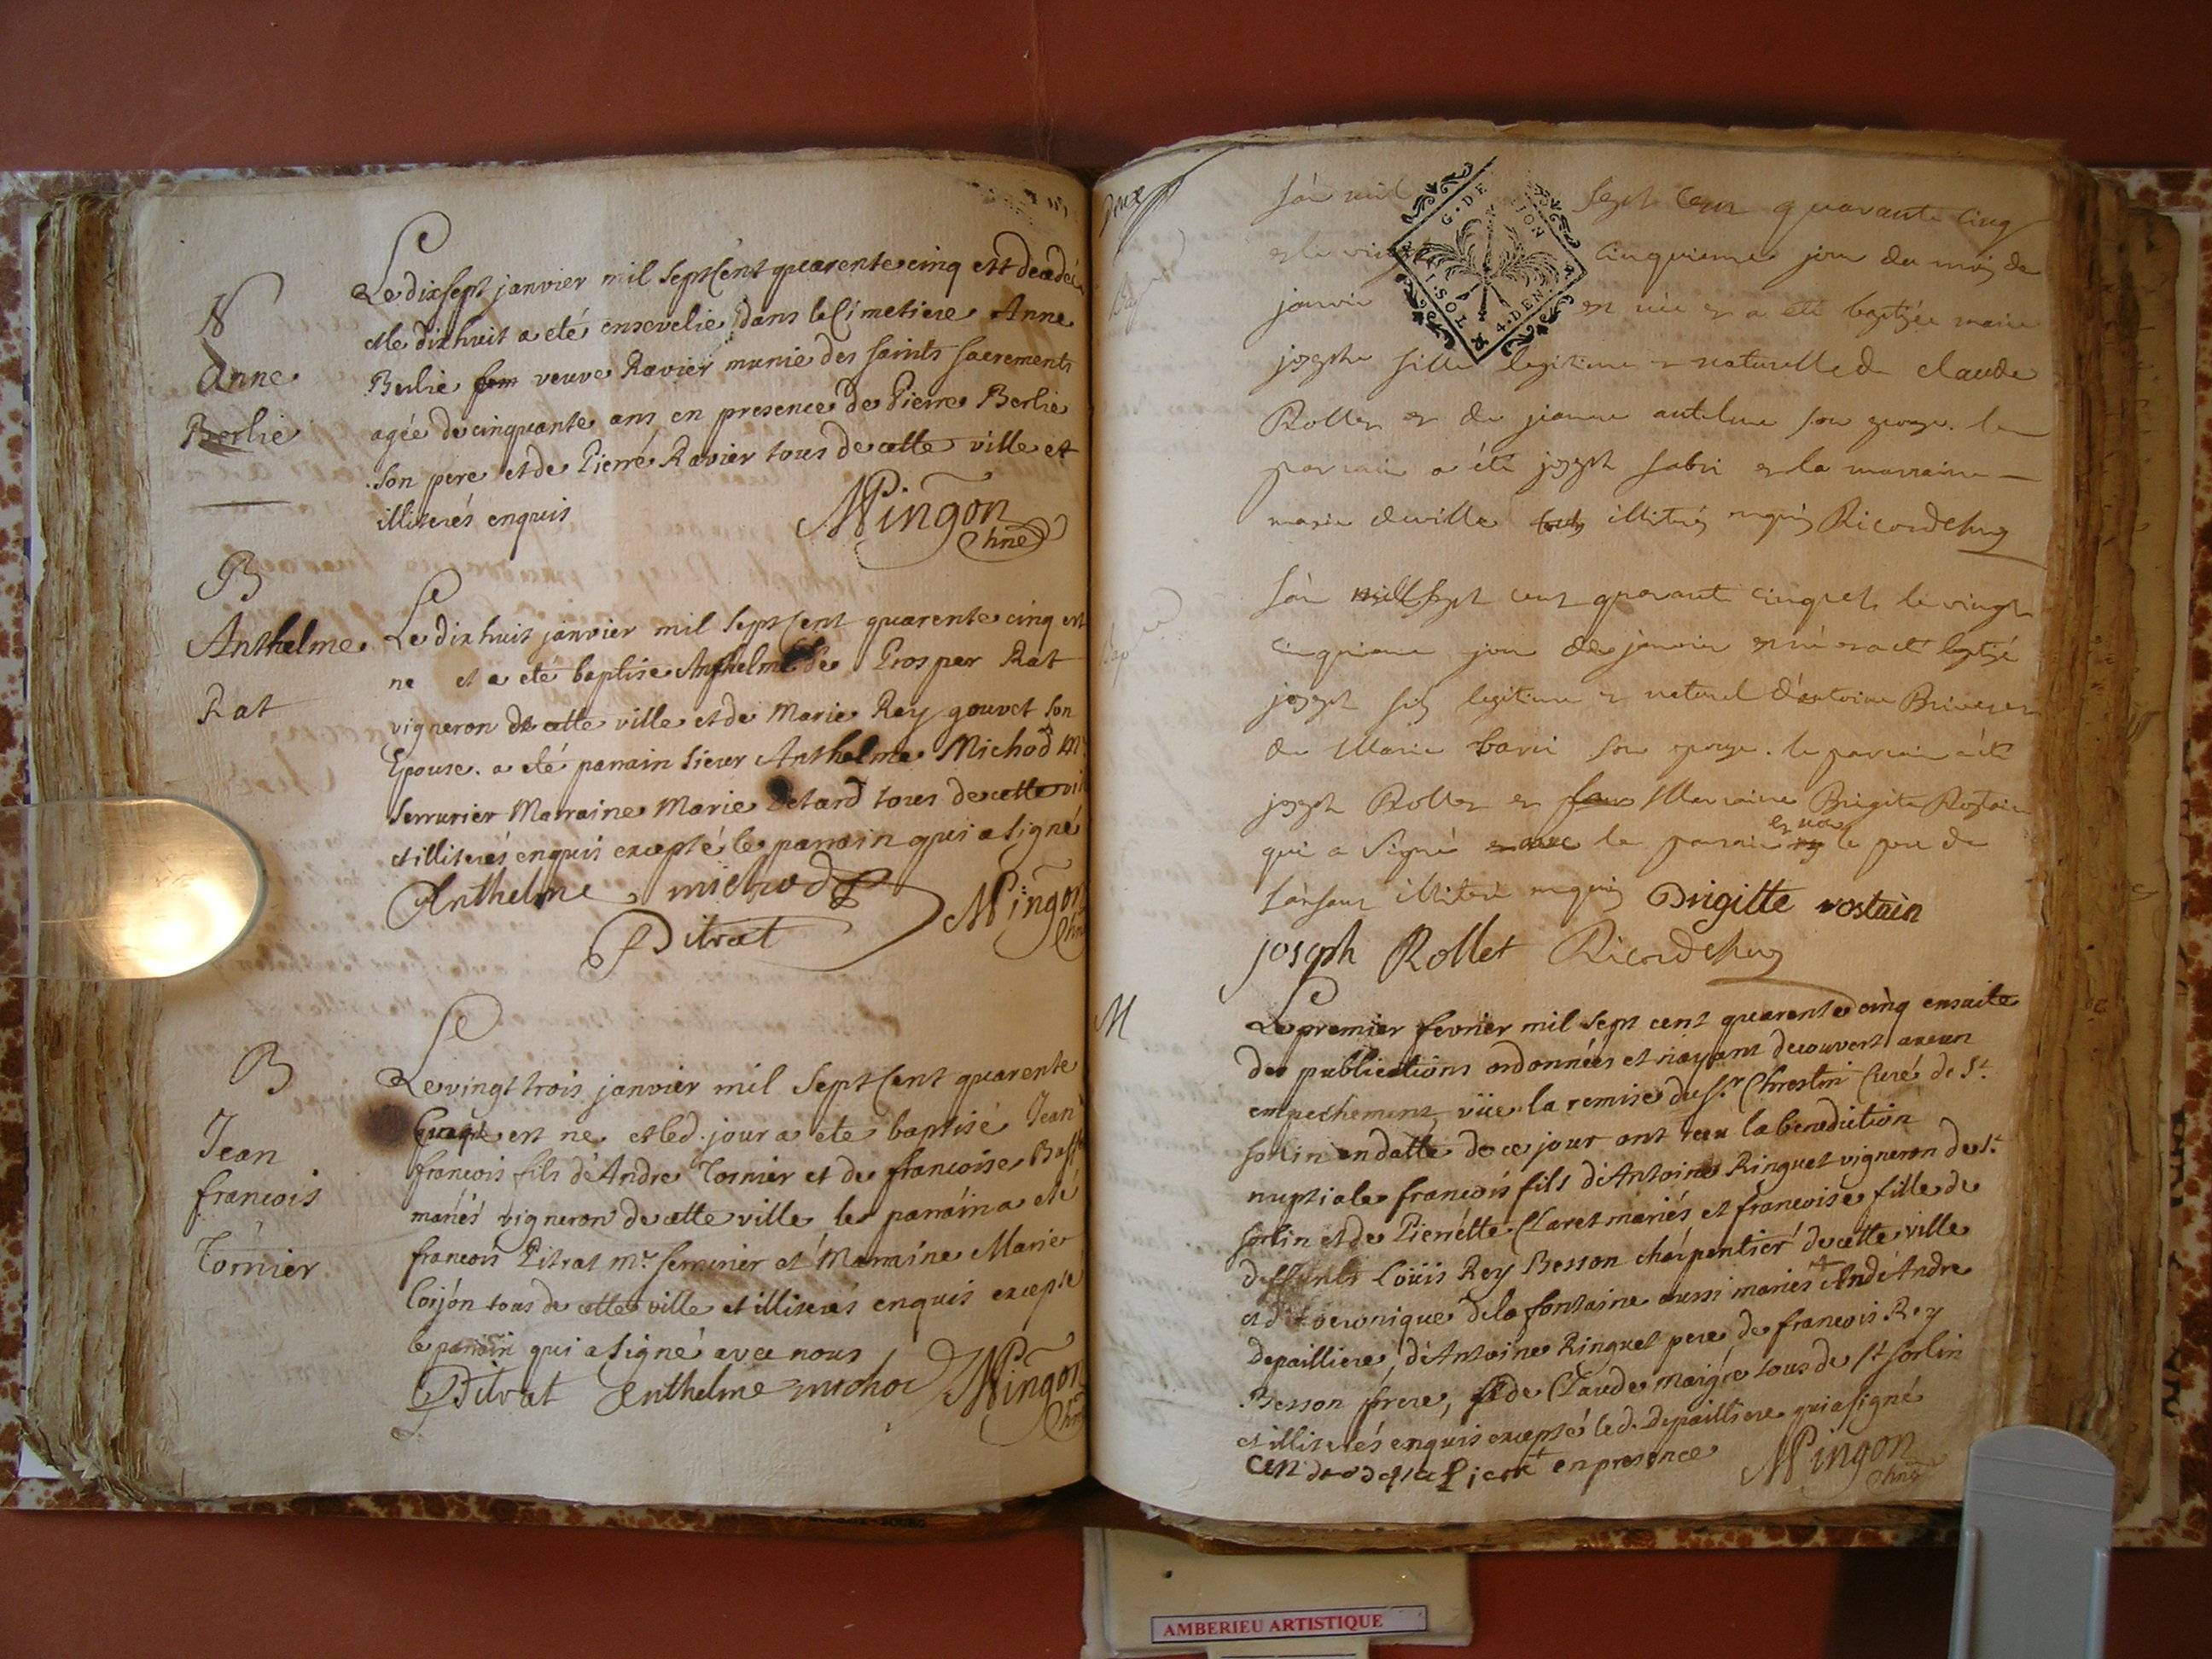 N
Anne
Berlie
Le dixsept janvier mil sept Cent quarente cinq est decedée
et le dixhuit a eté ensevelie dans le Cimetiere Anne
Berlie fem veuve Ravier munie des saints sacrements
agée de cinquante ans en presence de Pierre Berlie
son pere et de Pierre Ravier tous de cette ville et
illiterés enquis
Mingon
B
Anthelme
Rat
Le dixhuit janvier mil sept Cent quarente cinq est
ne et a eté baptise Anthelme de Prosper Rat
vigneron de cette ville et de Marie Rey gouvet son
Epouse. a eté parrain sieur Anthelme Michod Mr
serrurier Marraine Marie tous de cette vi
et illiterés enquis excepté le parrain qui a signé
Anthelme michod
Pitrat
Mingon
B
Jean
francois
Tornier
Le vingt trois janvier mil Sept Cent quarente
est ne et led. jour a eté baptisé Jean
francois fils d'Andre Tornier et de francoise
mariés vigneron de cette ville le parrain a eté
francois Pitrat mr. serrurier et Marraine Marie
tous de cette ville et illiterés enquis excepte
le parrain qui a signé avec nous
Pitrat Anthelme michod Mingon
G. DE ION
1. SOL 4. DEN.
l'an mil sept cent quarante cinq
et le vingt cinquieme jour du mois de
janvier est née et a eté baptizée marie
josephe fille legitime et naturelle de claude
Rollet et de jeanne antelme son epouse. le
parrain a été joseph fabri et la marraine
marie deville illiterés enquis
l'an mill sept cent quarante cinq et le vingt
cinquieme jour de janvier est né et a eté baptizé
joseph fils legitime et naturel d'antoine
de Marie son epouse. le parrain a été
joseph Rollet et Marraine Brigite Rostain
qui a signé avec le parrain et non le pere de
l'enfant illiteré enquis Brigitte rostain
joseph Rollet
M
Le premier fevrier mil sept cent quarente cinq ensuite
des publications ordonnées et n'ayant decouvert aucun
empechement vüe la remise du Sr. Chrestin Curé de St.
sorlin en datte de ce jour ont recu la benediction
nuptiale francois fils d'Antoine Ringuet vigneron de St.
sorlin et de Pierrette Claret mariés et francoise fille de
deffunts Loüis Rey Besson charpentier de cette ville
et de veronique dela fontaine aussi mariés d'Andre
depailliere, d'Antoine Ringuet pere de francois Rey
Besson frere, et de Claude Maigre tous de St sorlin
et illiterés enquis excepté led. Depailliere qui a signé
en presence Mingon
AMBERIEU ARTISTIQUE